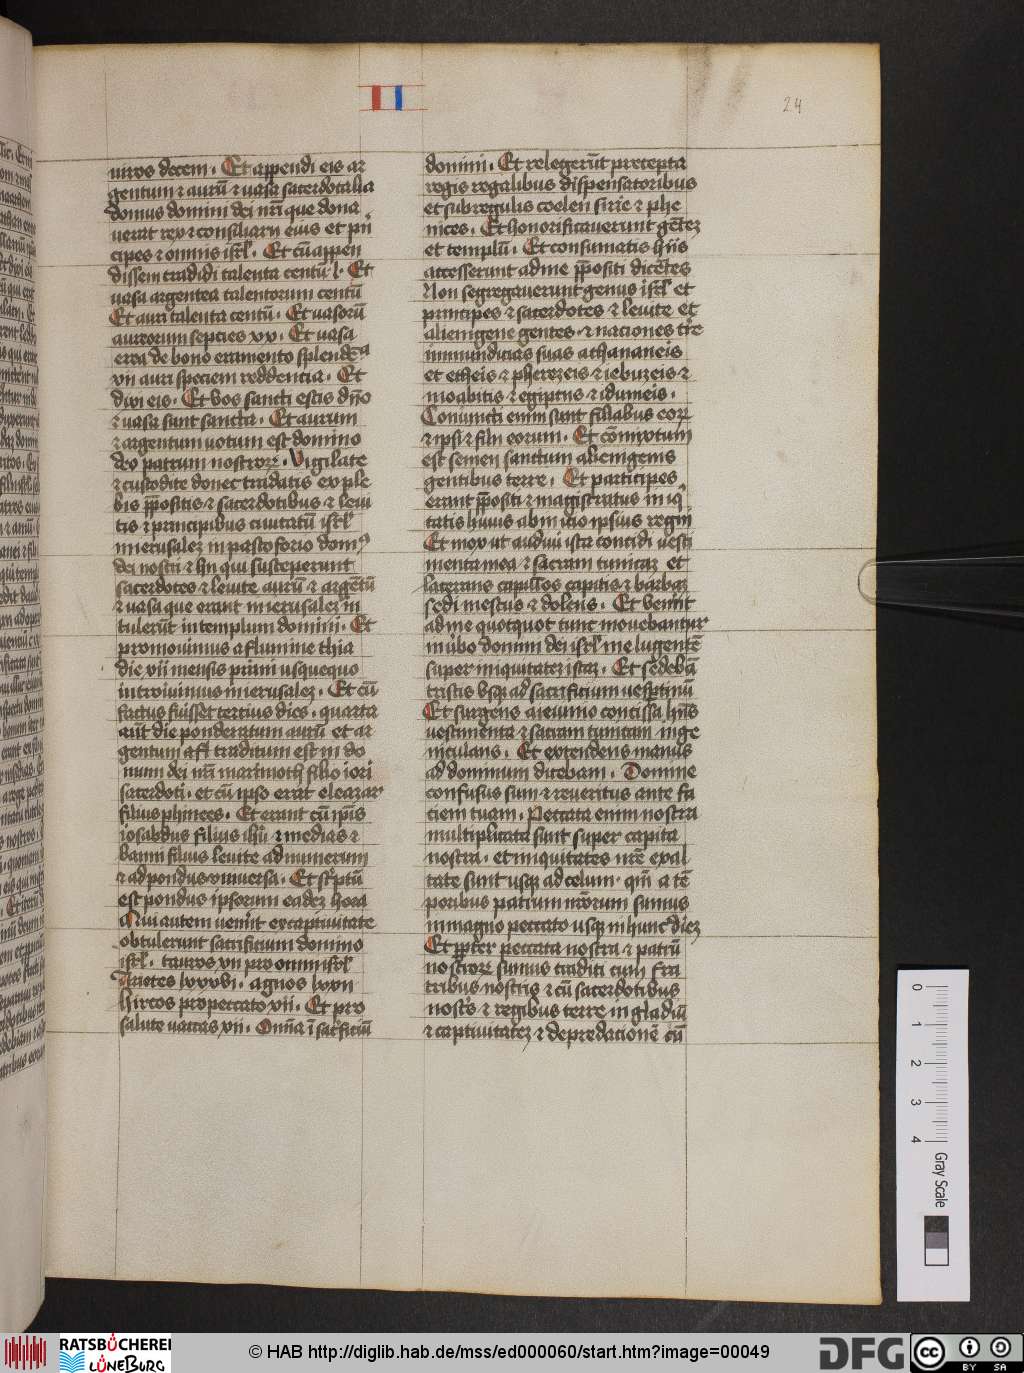 II
24
uiros decem. Et appendi eis ar
gentum ⁊ aurū ⁊ uasa sacerdotalia
domus domini dei nr̄i que dona
uerat rex ⁊ consiliarii eius et prī
cipes ⁊ omnis isrl̄. Et cū appen
dissem tradidi talenta centū l. Et
uasa argentea talentorum centū
Et auri talenta centū. Et uasorū
aureorum septies xx. Et uasa
erea de bono eramento splendēa
xii auri speciem reddencia. Et
dixi eis. Et vos sancti estis dn̄o
⁊ uasa sunt sancta. Et aurum
⁊ argentum uotum est domino
deo patrum nostrorꝝ. Vigilate
⁊ custodite donec tradatis ex ple
bis p̄positis ⁊ sacerdotibus ⁊ leui
tis ⁊ principibus ciuitatū isrl̄
in ierusalez in pastoforio domꝰ
dei nostri ⁊ hii qui susceperunt
sacerdotes ⁊ leuite aurū ⁊ argētū
⁊ uasa que erant in ierusalez in
tulerūt in templum domini. Et
promouimus a flumine thia
die xii mensis primi usquequo
introiuimus in ierusalez. Et cū
factus fuisset tertius dies. quarta
aūt die ponderatum aurū et ar
gentum est traditum est in do
mum dei nr̄i marimoth filio iori
sacerdoti. et cū ipso erat eleazar
filius phinees. Et erant cū ip̄is
iosabdus filius ihū ⁊ medias ⁊
banni filius leuite ad numerum
⁊ ad pondus uniuersa. Et scptū
est pondus ipsorum eadez hora
Qui autem uenerūt ex captiuitate
obtulerunt sacrificium domino
isrl̄. tauros xii pro omni isrl̄
Arietes lxxxvi. agnos lxxii
hircos pro peccato xii. Et pro
salute uaccas xii. Omīa ī sacficiū
domini. Et relegerūt precepta
regis regalibus dispensatoribus
et subregulis coelen sirie ⁊ phe
nices. Et honorificauerunt gētez
et templū. Et consumatis hiis
accesserunt ad me p̄positi dicētes
Non segregauerunt genus isrl̄ et
principes ⁊ sacerdotes ⁊ leuite et
alienigene gentes. ⁊ naciones tr̄e
inmundicias suas a chananeis
et etheis ⁊ pherezeis ⁊ iebuzeis ⁊
moabitis ⁊ egiptiis ⁊ idumeis.
Coniuncti enim sunt filiabus eorꝝ
⁊ ipsi ⁊ filii eorum. Et cōmixtum
est semen sanctum alienigenis
gentibus terre. Et participes
erant p̄positi ⁊ magistratus iniq
tatis huius ab inicio ipsius regni
Et mox ut audiui ista concidi uesti
menta mea ⁊ sacram tunicaz et
lacerans capillos capitis ⁊ barbaz
sedi mestus ⁊ dolens. Et venerūt
ad me quotquot tunc mouebantur
in ūbo domini dei isrl̄ me lugentē
super iniquitatez istaz. Et sedebā
tristis vsqꝫ ad sacrificium uesptinū
Et surgens a ieiunio concissa hn̄s
uestimenta ⁊ sacram tunicam inge
niculans. Et extendens manus
ad dominum dicebam. Domine
confusus sum ⁊ reueritus ante fa
ciem tuam. Peccata enim nostra
multiplicata sunt super capita
nostra. et iniquitates nr̄e exal
tate sunt usqꝫ ad celum. qm̄ a tē
poribus patrum nr̄orum sumus
in magno peccato usqꝫ in hunc diez
Et ꝓpter peccata nostra ⁊ patrū
nostrorꝝ sumus traditi cum fra
tribus nostris ⁊ cū sacerdotibus
nostrs ⁊ regibus terre in gladiū
⁊ captiuitatez ⁊ depredacionē cū
0
1
2
3
4
Gray Scale
RATSBÜCHEREI
LÜNEBURG
© HAB http://diglib.hab.de/mss/ed000060/start.htm?image=00049
DFG
cc
BY SA